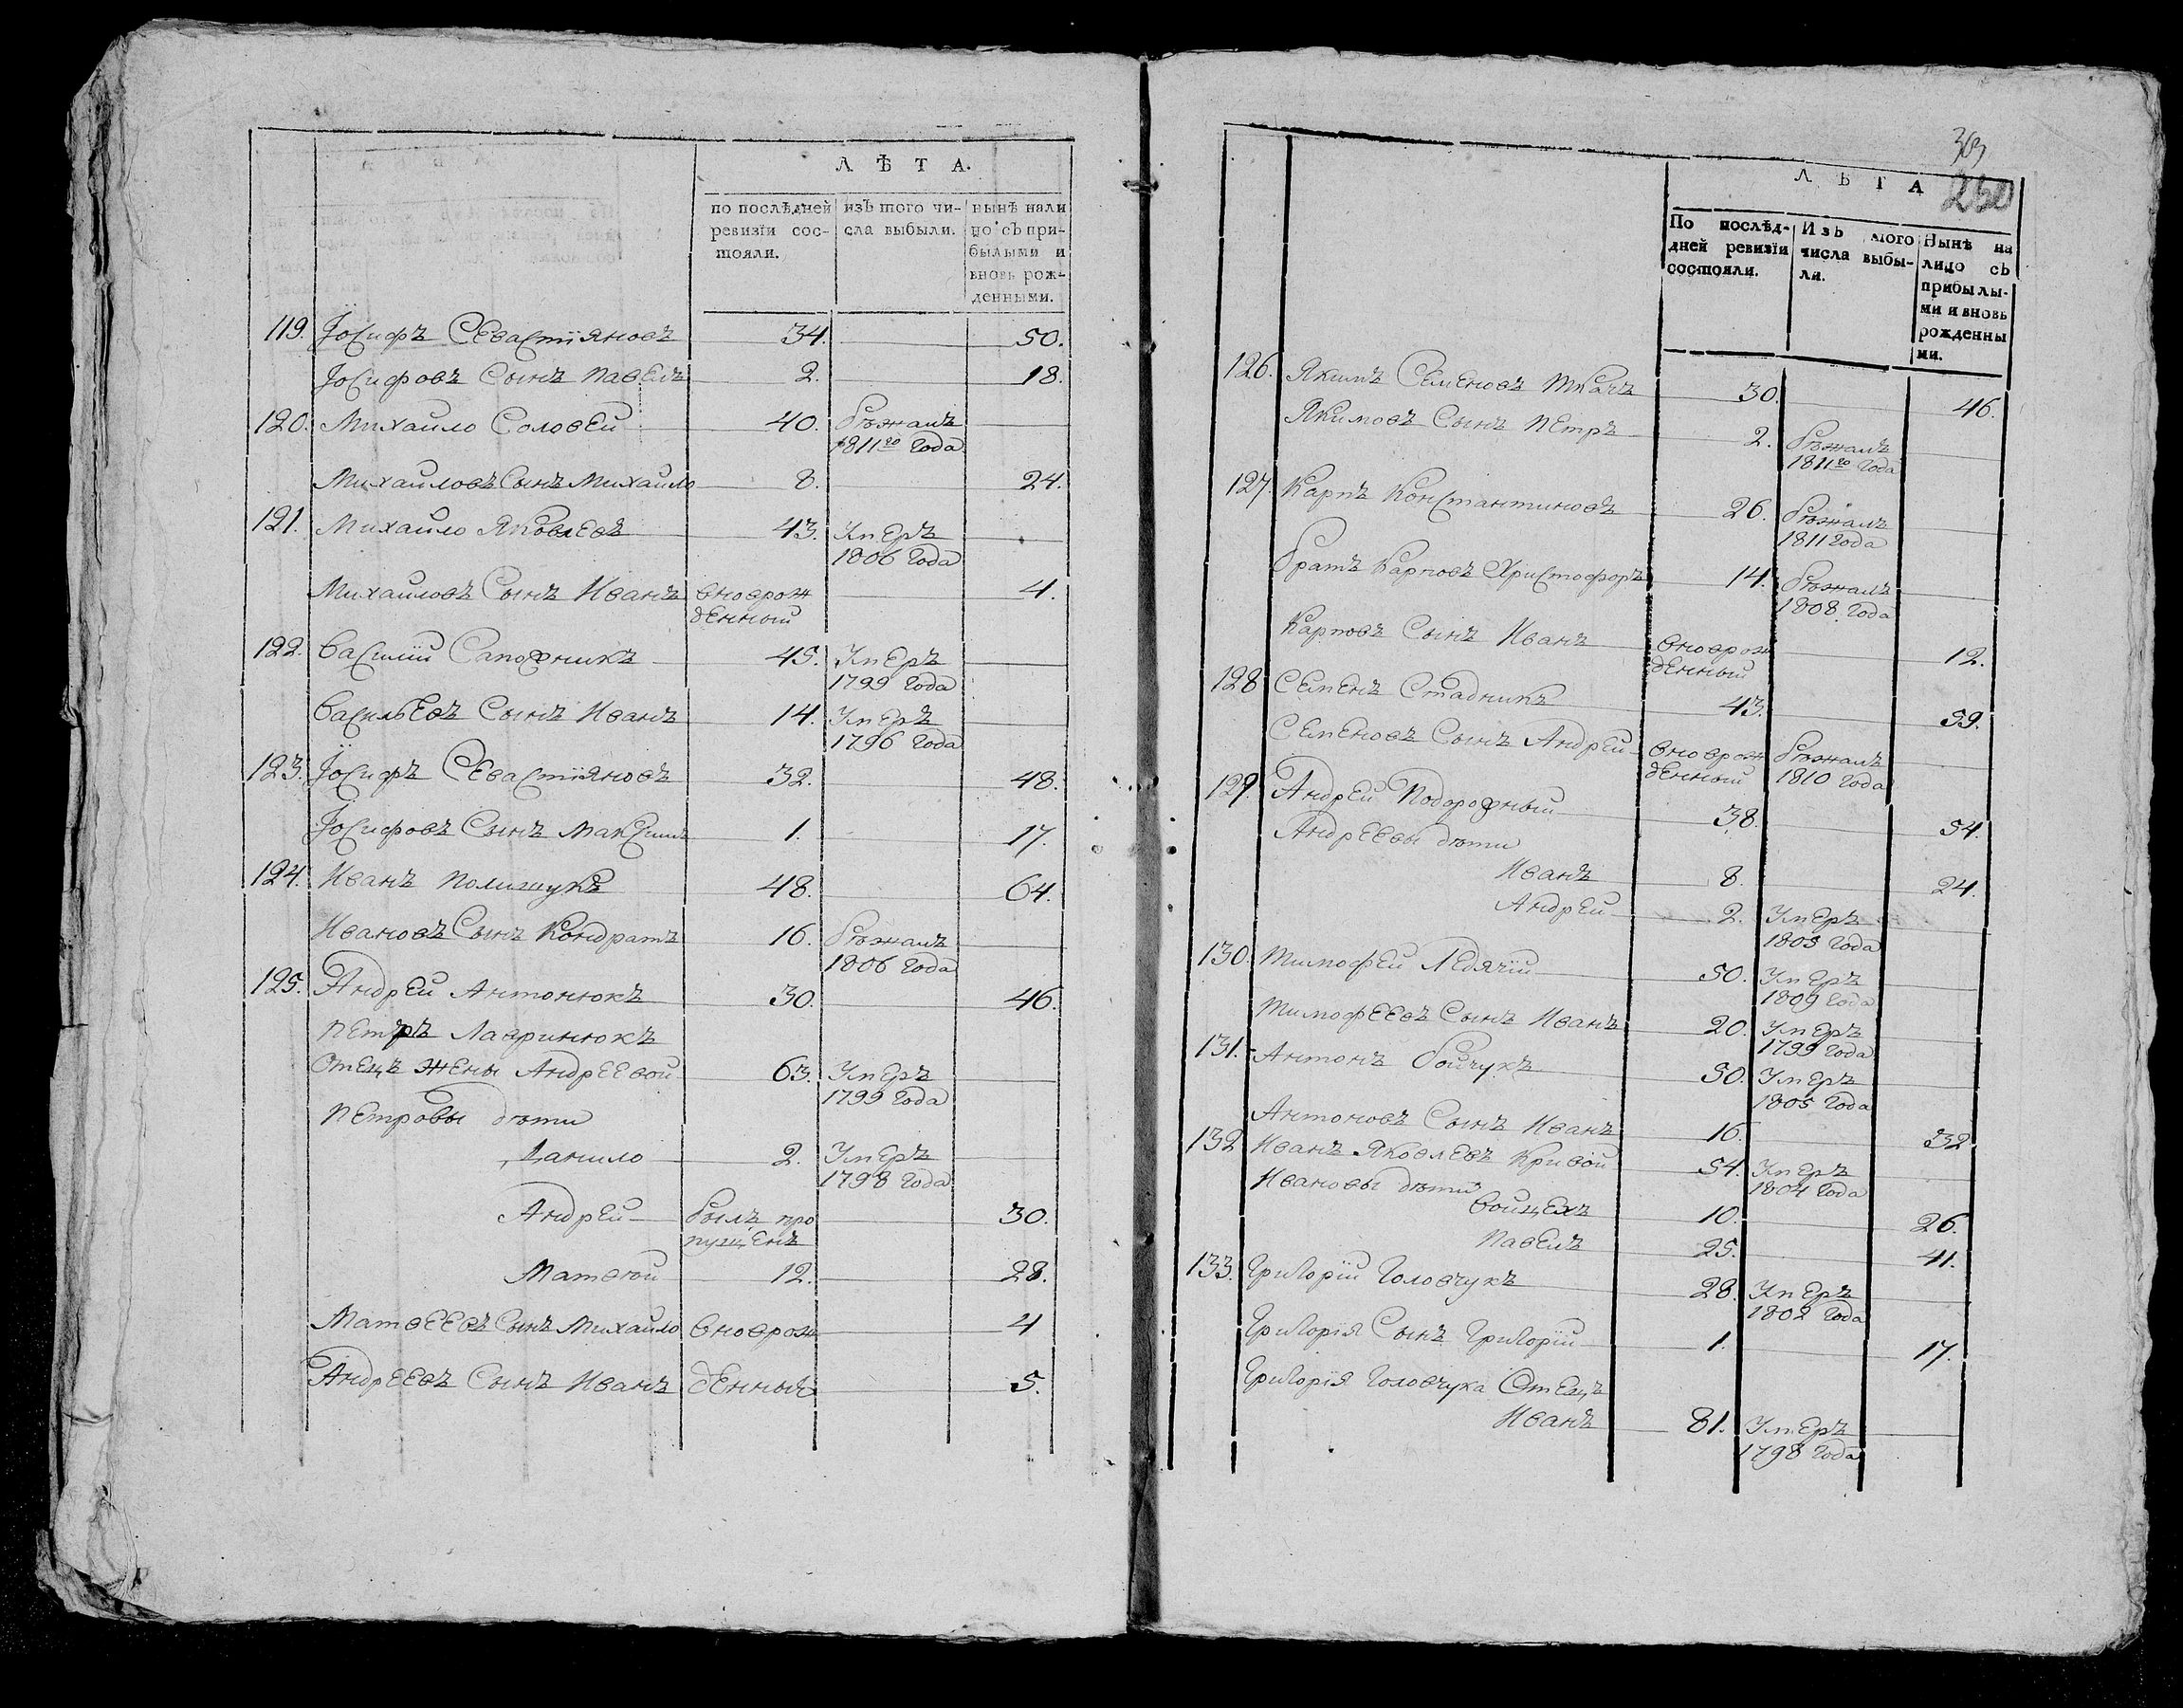 ЛѢТА.
по послѣдней ревизіи состояли.
изъ того числа выбыли.
нынѣ налицо съ прибылыми и вновь рожденными.
119. Іосифъ Севастіяновъ 34. 50.
Іосифовъ Сынъ Павелъ 2. 18.
120. Михайло Соловей 40. бѣжалъ
1811го года
Михайловъ Сынъ Михайло 8. 24.
121. Михайло Яковлевъ 43. Умеръ
1806 года
Михайловъ Сынъ Иванъ вноврож 4.
денный
122. Василій Сапожникъ 45. Умеръ
1799 года
Васильевъ Сынъ Иванъ 14. Умеръ
1796 года
123. Іосифъ Севастіяновъ 32. 48.
Іосифовъ Сынъ Максимъ 1. 17.
124. Иванъ Полищукъ 48. 64.
Ивановъ Сынъ Кондратъ 16. бѣжалъ
1806 года
125. Андрей Антонюкъ 30. 46.
Петръ Лавринюкъ
Отецъ жены Андреевой 63. Умеръ
1799 года
Петровы дѣти
Данило 2. Умеръ
1798 года
Андрей былъ про 30.
пущенъ
Матвѣй 12. 28.
Матвеевъ Сынъ Михайло вноврож 4
Андреевъ Сынъ Иванъ денные 5.
303
250
ЛѢТА
По послѣдней ревизіи состояли.
Изъ того числа выбыли.
Нынѣ на лицо съ прибылыми и вновь рожденными.
126. Якимъ Семеновъ Ткачъ 30. 46.
Якимовъ Сынъ Петръ 2. бѣжалъ
1811го года
127. Карпъ Константиновъ 26. бѣжалъ
1811 года
братъ Карповъ Христофоръ 14. бѣжалъ
1808. года
Карповъ Сынъ Иванъ вноврож 12.
денный
128 Семенъ Стадникъ 43. 59.
Семеновъ Сынъ Андрей вноврож бѣжалъ
денный 1810 года
129. Андрей Подорожный 38. 54.
Андреевы дѣти
Иванъ 8. 24.
Андрей 2. Умеръ
1805 года
130. Тимофей Ледячій 50. Умеръ
1809 года
Тимофеевъ Сынъ Иванъ 20. Умеръ
1799 года
131. Антонъ бойчукъ 50. Умеръ
1805 года
Антоновъ Сынъ Иванъ 16. 32
132 Иванъ Яковлевъ Кривой 54. Умеръ
1804 года
Ивановы дѣти
Войцехъ 10. 26.
Павелъ 25. 41.
133. Григорій Головчукъ 28. Умеръ
1802 года
Григорія Сынъ Григорій 1. 17.
Григорія Головчука Отецъ
Иванъ 81. Умеръ
1798 года